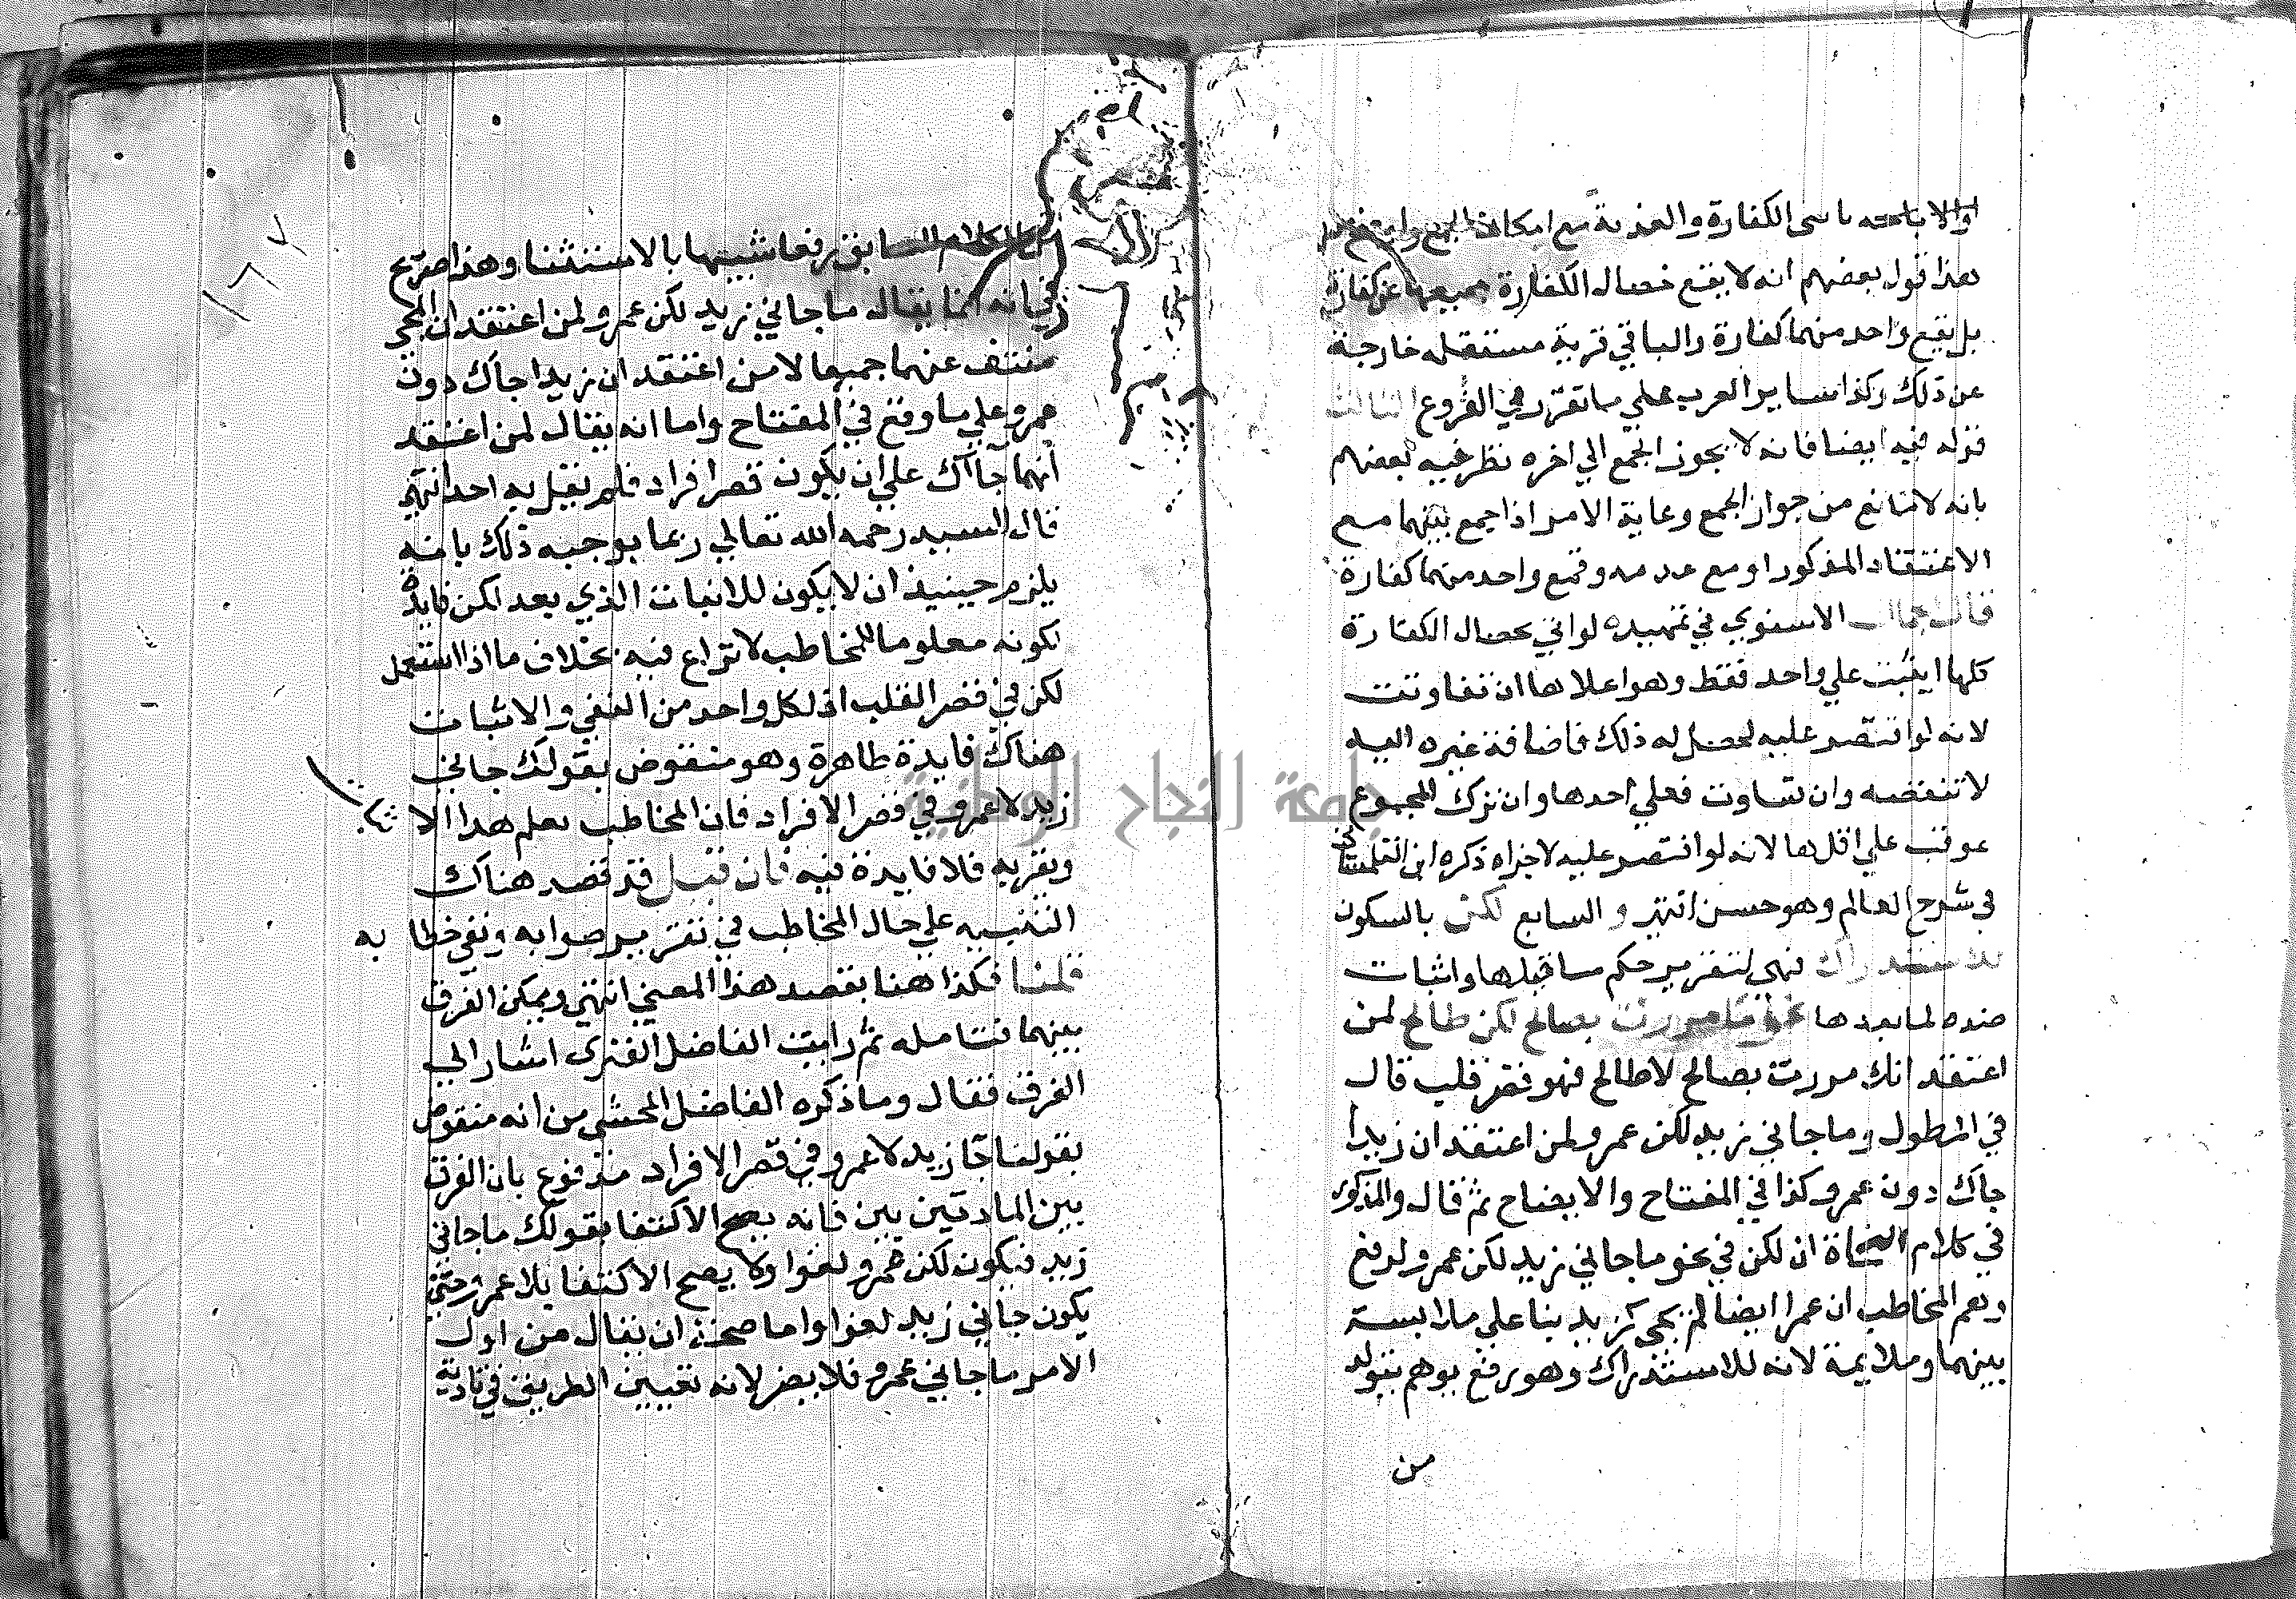 والاباحة باي الكفارة والفدية مع امكان الجمع
بهذا قول بعضهم انه لا يقع خصال الكفارة جميعها عن كفارة
بل يقع واحد منهما كفارة والباقي قربة مستقله خارجة
عن ذلك وكذا ساير العرب علي ما تقرر في الفروع الثالث
قوله فيه ايضا فانه لا يجوز الجمع الي اخره نظر فيه بعضهم
بانه لا مانع من جواز الجمع وغاية الامر اذا جمع بينهما مع
الاعتقاد المذكور او مع عدمه وقع واحد منهما كفارة
قال جمال الاسنوي في تمهيده لو اتي بخصال الكفارة
كلها اثيب علي واحد فقط وهو اعلاها ان تفاوتت
لانه لو اقتصر عليه لحصل له ذلك فاضافة غيره اليه
لا تنقصه وان تساوت فعلي احدها وان ترك المجموع
عوقب علي اقلها لانه لو اقتصر عليه لاجزاه ذكره ابن التلمساني
في شرح المعالم وهو حسن انتهي والسابع لكن بالسكون
للاستدراك فهي لتقرير حكم ما قبلها واثبات
ضده لما بعدها نحو ما مررت بصالح لكن طالح لمن
اعتقد انك مررت بصالح لا طالح فهو قصر قلب قال
في المطول وما جاني زيد لكن عمرو لمن اعتقد ان زيدا
جاك دون عمرو كذا في المفتاح والايضاح ثم قال والمذكور
في كلام النحاة ان لكن في نحو ما جاني زيد لكن عمرو لدفع
وهم المخاطب ان عمرا ايضا لم يجي كزيد بنا علي ملابسة
بينهما وملايمة لانه للاستدراك وهو رفع توهم يتولد
من
من الكلام السابق رفعا شبيها بالاستثنا وهذا صريح
في انه انما يقال ما جاني زيد لكن عمرو لمن اعتقد ان المجي
منتف عنهما جميعا لا من اعتقد ان زيدا جاك دون
عمرو علي ما وقع في المفتاح واما انه يقال لمن اعتقد
انهما جاآك علي ان يكون قصر افراد فلم يقل به احد انتهي
قال السيد رحمه الله تعالي ربما يوجبه ذلك بانه
يلزم حينيذ ان لا يكون للاثبات الذي بعد لكن فايدة
لكونه معلوما للمخاطب لا نزاع فيه بخلاف ما اذا استعمل
لكن في قصر القلب اذ لكل واحد من النفي والاثبات
هناك فايدة ظاهرة وهو منقوض بقولك جاني
زيد لا عمرو في قصر الافراد فان المخاطب يعلم هذا الاثبات
ويقر به فلا فايدة فيه فان قيل قد قصد هناك
التنبيه علي حال المخاطب في تقرير صوابه ونفي خطابه
قلنا فكذا هنا بقصد هذا المعني انتهي ويمكن الفرق
بينهما فتامله ثم رايت الفاضل الفنري اشار الي
الفرق فقال وما ذكره الفاضل المحشي من انه منقوض
بقولنا جا زيد لا عمرو في قصر الافراد مدفوع بان الفرق
بين المادتين بين فانه يصح الاكتفا بقولك ما جاني
زيد فيكون لكن عمرو لغوا ولا يصح الاكتفا بلا عمرو حتي
يكون جاني زيد لغوا واما صحة ان يقال من اول
الامر ما جاني عمرو فلا يضر لانه تعيين الطريق في تادية
١٦٧